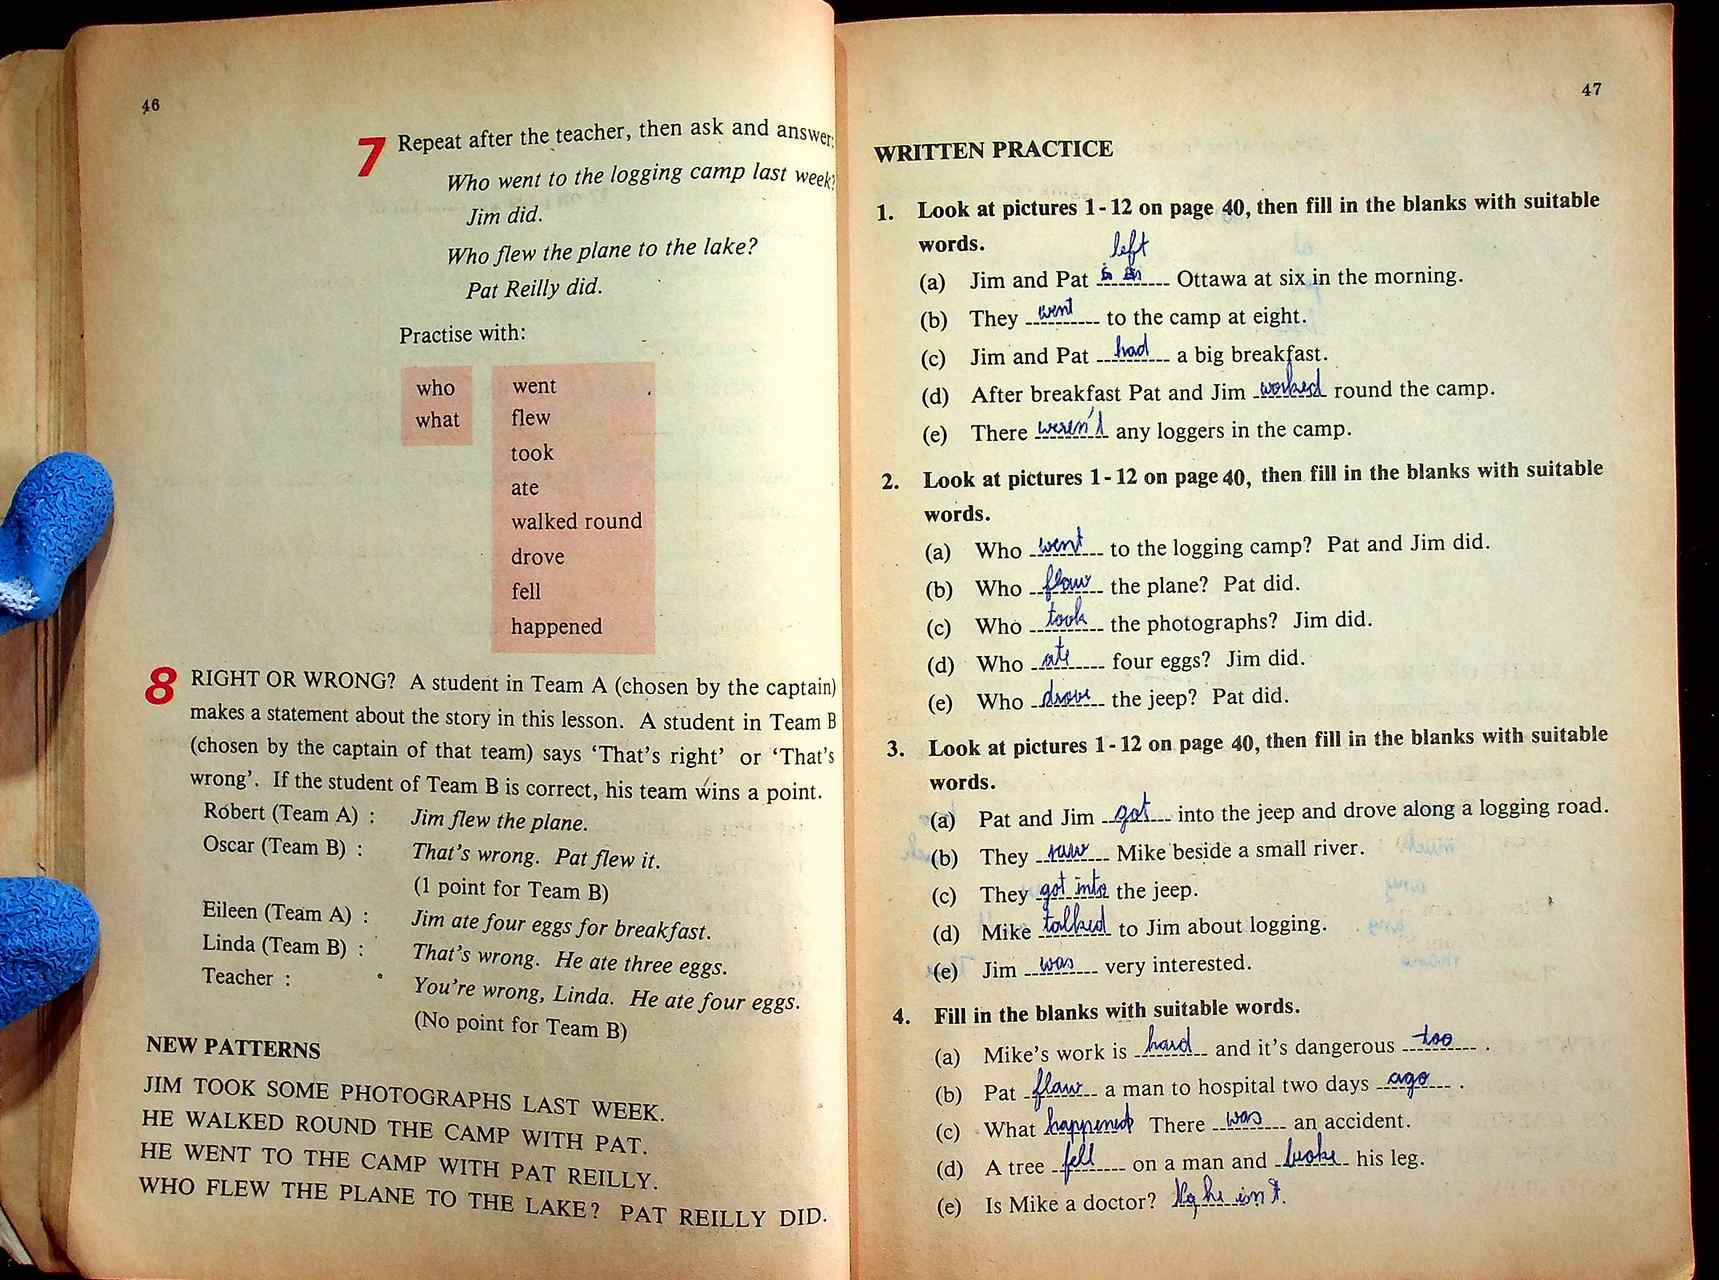 46
7 Repeat after the teacher, then ask and answer:
Who went to the logging camp last week?
Jim did.
Who flew the plane to the lake?
Pat Reilly did.
Practise with:
who
what
went
flew
took
ate
walked round
drove
fell
happened
8 RIGHT OR WRONG? A student in Team A (chosen by the captain)
makes a statement about the story in this lesson. A student in Team B
(chosen by the captain of that team) says ‘That’s right’ or ‘That’s
wrong’. If the student of Team B is correct, his team wins a point.
Robert (Team A) : Jim flew the plane.
Oscar (Team B) : That’s wrong. Pat flew it.
(1 point for Team B)
Eileen (Team A) : Jim ate four eggs for breakfast.
Linda (Team B) : That’s wrong. He ate three eggs.
Teacher : You’re wrong, Linda. He ate four eggs.
(No point for Team B)
NEW PATTERNS
JIM TOOK SOME PHOTOGRAPHS LAST WEEK.
HE WALKED ROUND THE CAMP WITH PAT.
HE WENT TO THE CAMP WITH PAT REILLY.
WHO FLEW THE PLANE TO THE LAKE? PAT REILLY DID.
47
WRITTEN PRACTICE
1. Look at pictures 1-12 on page 40, then fill in the blanks with suitable
words.
(a) Jim and Pat left Ottawa at six in the morning.
(b) They went to the camp at eight.
(c) Jim and Pat had a big breakfast.
(d) After breakfast Pat and Jim worked round the camp.
(e) There weren't any loggers in the camp.
2. Look at pictures 1-12 on page 40, then fill in the blanks with suitable
words.
(a) Who went to the logging camp? Pat and Jim did.
(b) Who flaw the plane? Pat did.
(c) Who took the photographs? Jim did.
(d) Who ate four eggs? Jim did.
(e) Who drove the jeep? Pat did.
3. Look at pictures 1-12 on page 40, then fill in the blanks with suitable
words.
(a) Pat and Jim got into the jeep and drove along a logging road.
(b) They saw Mike beside a small river.
(c) They got into the jeep.
(d) Mike talked to Jim about logging.
(e) Jim was very interested.
4. Fill in the blanks with suitable words.
(a) Mike’s work is hard and it’s dangerous too .
(b) Pat flaw a man to hospital two days ago .
(c) What happened There was an accident.
(d) A tree fell on a man and broke his leg.
(e) Is Mike a doctor? No he isn't.